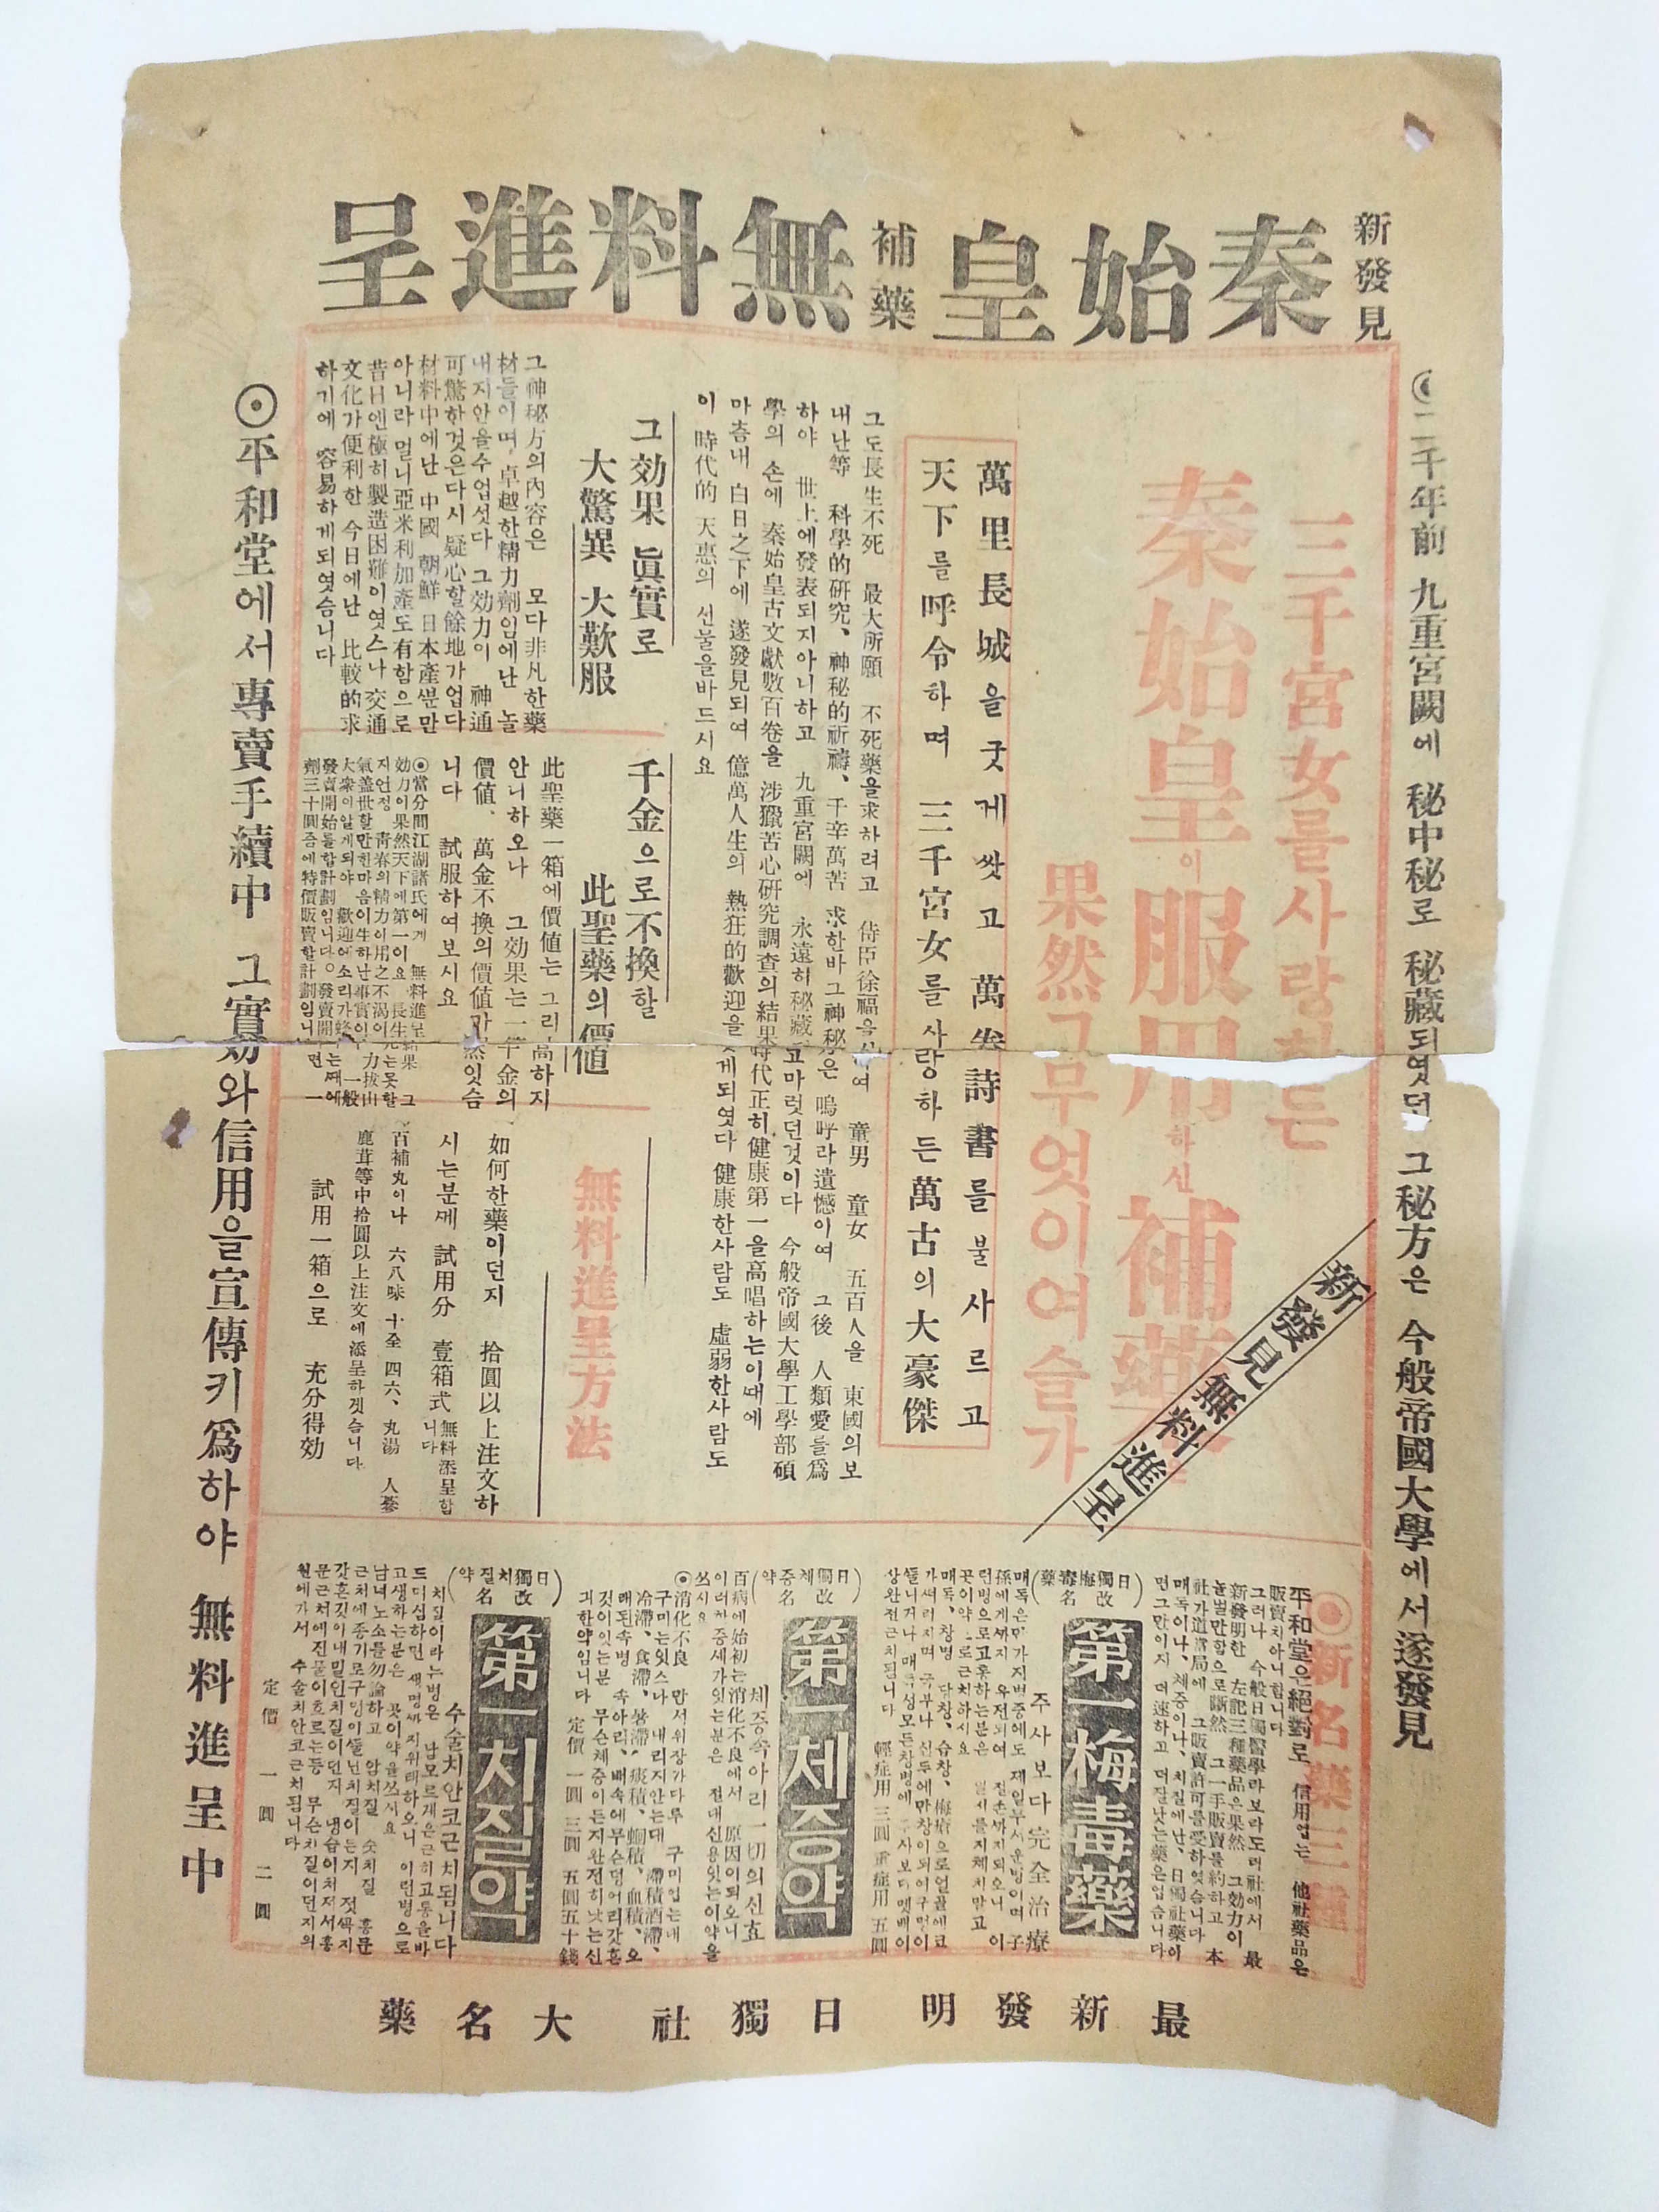 新發見
秦始皇 補藥 無料進呈
二千年前 九重宮闕에 秘中秘로 秘藏되엿던 그秘方은 今般帝國大學에서遂發見
三千宮女를사랑하든
秦始皇이服用하신補藥
果然그무엇이여슬가
新發見無料進呈
萬里長城을굿게쌋고 萬卷詩書를불사르고
天下를呼令하며 三千宮女를사랑하든萬古의大豪傑
그도長生不死 最大所願 不死藥을求하려고 侍臣徐福을 여 童男 童女 五百人을 東國의보
내난等 科學的研究、神秘的祈禱、千辛萬苦 求한바그神秘은 嗚呼라遺憾이여 그後 人類愛를爲
하야 世上에發表되지아니하고 九重宮闕에 永遠히秘藏 고마럿던것이다 今般帝國大學工學部碩
學의 손에 秦始皇古文獻數百卷을 涉獵苦心研究調査의結果 時代正히健康第一을高唱하는이때에
마츰내 白日之下에 遂發見되여 億萬人生의 熱狂的歡迎을 게되엿다 健康한사람도 虛弱한사람도
이 時代的 天惠의 선물을바드시요
그効果 眞實로
大驚異 大歎服
그神秘方의內容은 모다非凡한藥
材들이며 卓越한精力劑임에난 놀
내지안을수업섯다 그効力이 神通
可驚한것은다시 疑心할餘地가업다
材料中에난 中國 朝鮮 日本產뿐만
아니라멀니亞米利加產도有함으로
昔日엔極히製造困難이엿스나 交通
文化가便利한 今日에난 比較的求
하기에 容易하게되엿슴니다
千金으로不換할
此聖藥의價値
此聖藥一箱에價値는 그리高하지
안니하오나 그效果는一千金의
價値、萬金不換의價値가 잇슴
니다 試服하여보시요
◉當分間江湖諸氏에게 無料進呈 結果 그
効力이果然天下에第一이요 長生 는못할
지언정 靑春의精力이用之不渴이 力拔山
氣盖世할만한마음이生하난事實이 一般
大衆이알게되야 歡迎에소리가 는때에
發賣開始를할計劃임니다。發賣開 면 一
劑三十圓중에特價販賣할計劃임니
無料進呈方法
如何한藥이던지 拾圓以上注文하
시는분께 試用分 壹箱式 無料添呈합니다
百補丸이나 六八味 十全 四六、丸湯 人蔘
鹿茸等中拾圓以上注文에添呈하겟슴니다
試用一箱으로 充分得効
◉新名藥三種
平和堂은絕對로 信用업는 他社藥品은
販賣치아니합니다
그러나 今般日獨醫學라보라도리社에서 最
新發明한 左記三種藥品은果然 그効力이
놀낼만함으로斷然 그一手販賣를約하고 本
社가道當局에 그販賣許可를受하엿슴니다
매독이나、체증이나、치질에난、日獨社藥이
면그만이지 더速하고 더잘낫는藥은업슴니다
(日獨改名 梅毒藥)
第一梅毒藥
주사보다完全治療
매독은만가지병중에도 제일무서운병이며 子
孫에게까지 유전되여 절손까지되오니 이
런병으로고통하는분은 일시를지체치말고
곳이약으로근치하시요
매독、창병 당창、습창、梅瘡으로얼골에코
가써러지며 국부나 신두에만창이되여구멍이
뚤니거나 매독성모든창병에 주사보다몃배이
상완전근치됨니다 輕症用 三圓 重症用 五圓
(日獨改名 체증약)
第一체증약
체증속아리 一切의신효
百病에始初는消化不良에서 原因이되오니
이러하중세가잇는분은 절대신용잇는이약을
쓰시요
◉消化不良 만서위장가다루 구미업는대
구미는잇스나 내리지안는대 滯積酒滯、
冷滯、食滯、暑滯、痰積、蛔積、血積、오
래된속병 속아리、배속에무슨덩어리갓흔
것이잇는분 무슨체증이든지완전히낫는신
긔한약임니다 定價 一圓 三圓 五圓五十錢
(日獨改名 치질약)
第一치질약
수술치안코근치됨니다
치질이라는병은 남모르게은근히고통을바
드미심하면 생명까지위태하오니 이런병으로
고생하는분은 곳이약을쓰시요
남녀노소를勿論하고 암치질 숫치질 흥문
근처에종기로구멍이뚤닌치질이든지 젓꼭지
갓흔것이내밀인치질이던지 냉습이처저서흥
문근처에진물이흐르는등 무슨치질이던지의
원에가서 수술치안코근치됨니다
定價 一圓 二圓
◉平和堂에서專賣手續中 그實効와信用을宣傳키爲하야 無料進呈中
最新發明 日獨社 大名藥